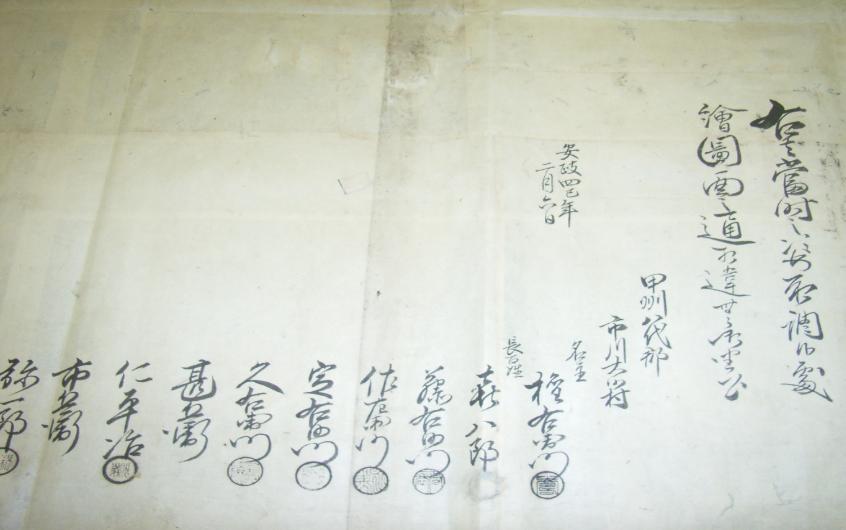 右者當時之姿取調候處
繪圖面之通相違無御座候
安政四巳年
二月六日
甲州八代郡
市川大門村
名主
権右衛門
長百姓
喜八郎
藤右衛門
作左衛門
定右衛門
久右衛門
甚五兵衛
仁平治
市五兵衛
弥一郎